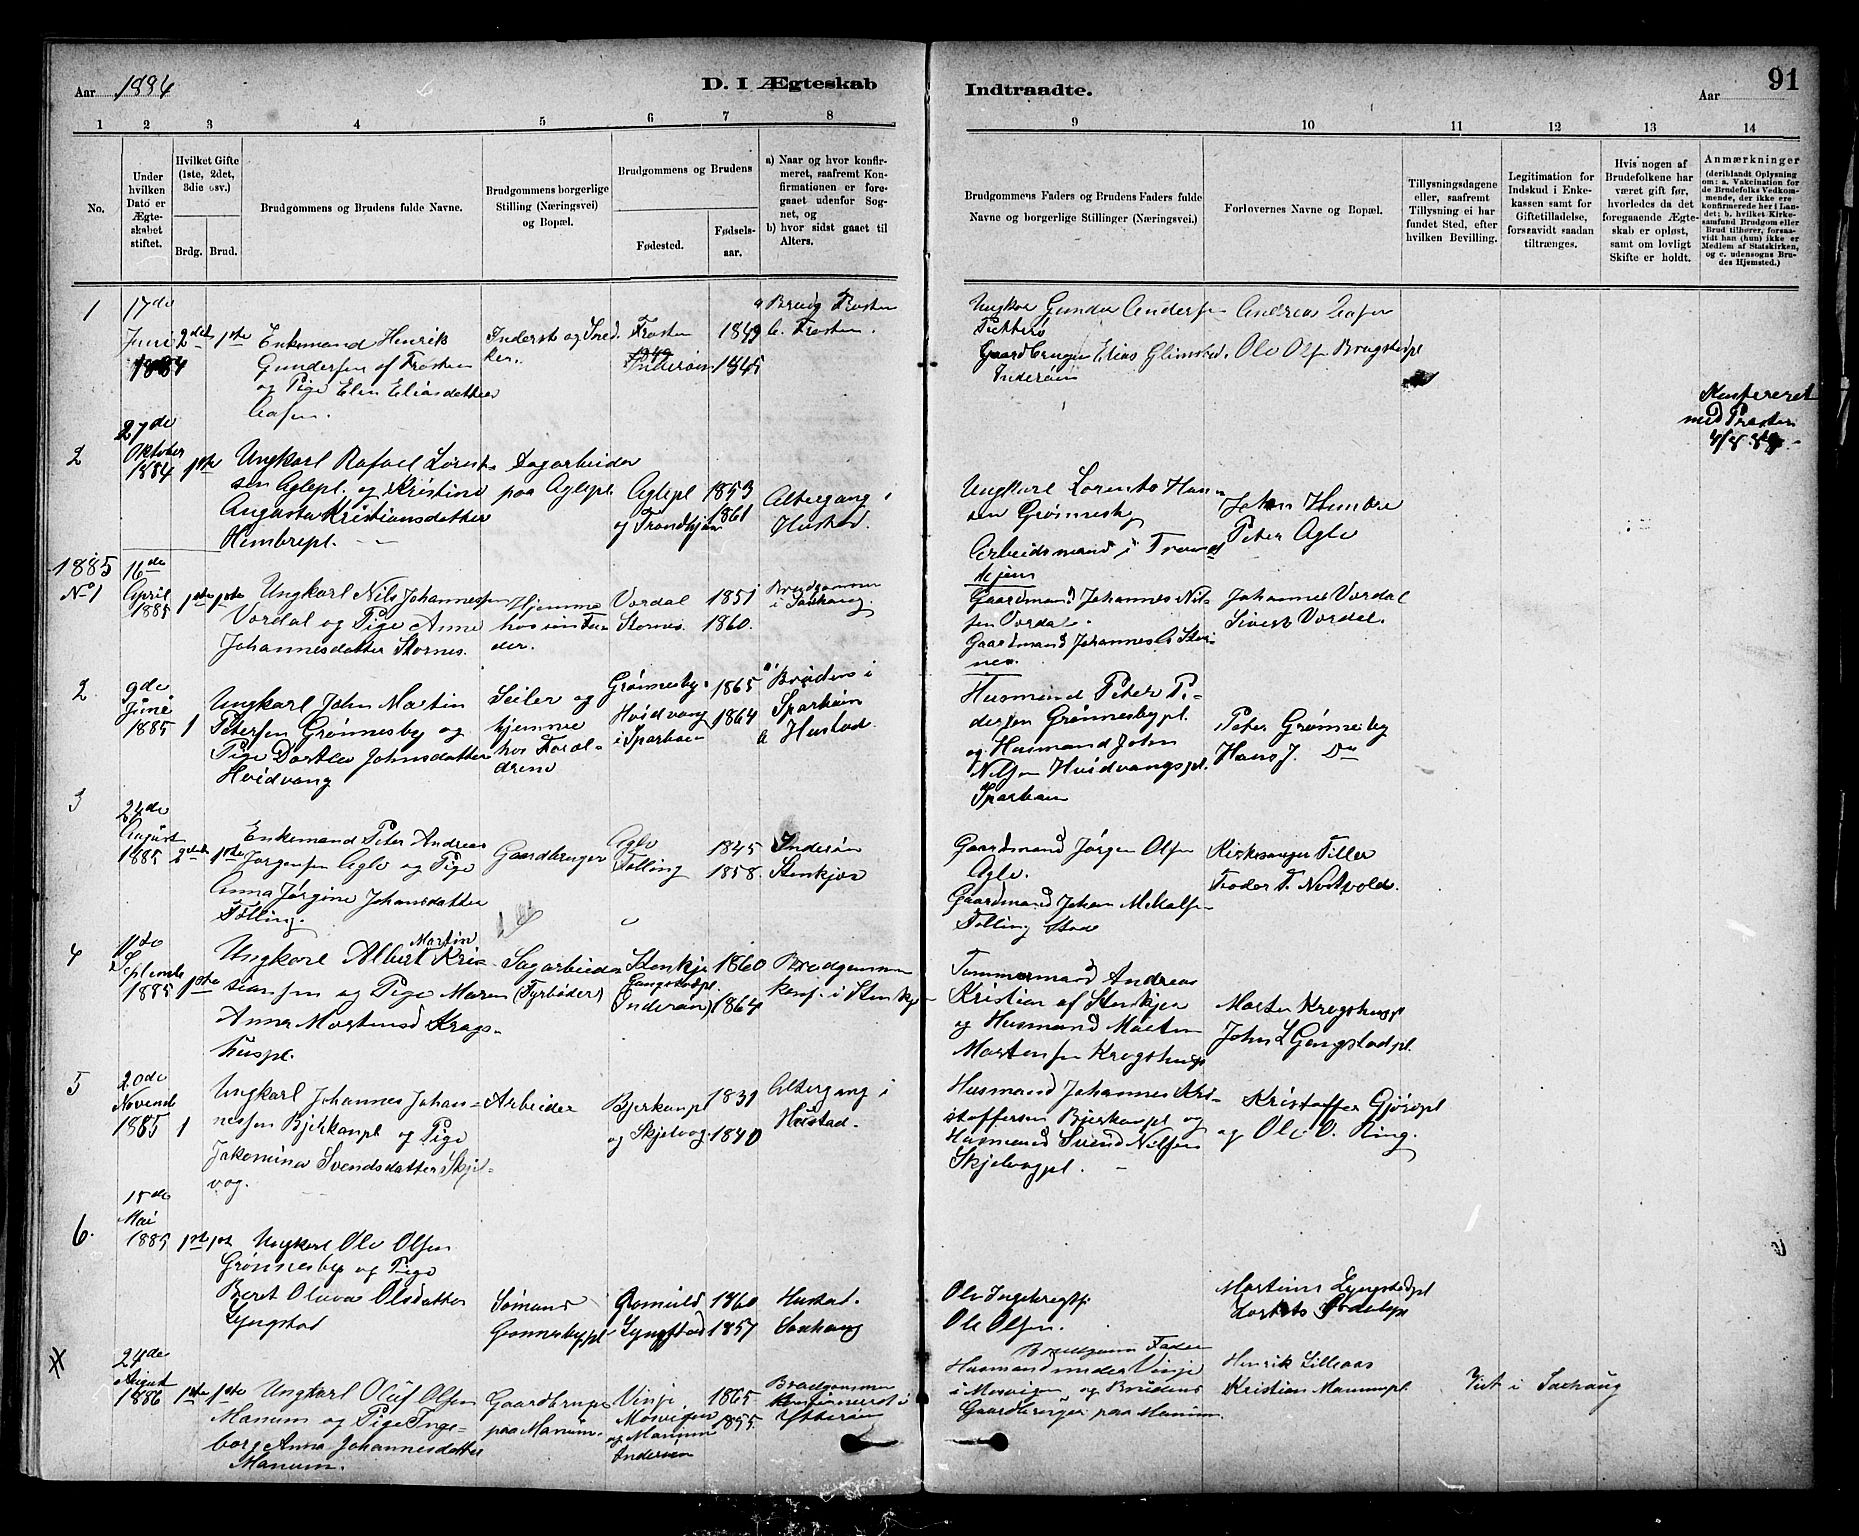 Aar 1884
D. I Ægteskab
1 2 3 4 5 6 7 8
No.
Under hvilken Dato er Ægteskabet stiftet.
Hvilket Gifte (1ste, 2det, 3die osv.)
Brdg. Brud.
Brudgommens og Brudens fulde Navne.
Brudgommens borgerlige Stilling (Næringsvei) og Bopæl.
Brudgommens og Brudens
Fødested.
Fødselsaar.
a) Naar og hvor konfirmeret, saafremt Konfirmationen er foregaaet udenfor Sognet, og
b) hvor sidst gaaet til Alters.
1
17de
Juni
1884
2det 1ste
Enkemand Henrik
Gundersen af Frosten
og Pige Elen Eliasdatter
Aasen.
Inderst og Sned
ker.
Frosten 1849
Inderøen 1845
a Brudg Frosten
b. Frosten.
2
27de
Oktober
1884 1ste
Ungkarl Rafael Lorents
sen Aglepl. og Kristine
Augusta Kristiansdatter
Hembrepl.
Dagarbeider
paa Aglepl.
Aglepl 1853
og Trondhjem 1861
Altergang i
Hustad.
1885
No 1
16de
April
1885 1ste 1ste
Ungkarl Nils Johannessen
Vordal og Pige Anne
Johannesdatter Stornes.
Hjemme
hos sin Fa
der.
Vordal 1851
Stornes. 1860.
Brudgommen
i Saxhaug
2
9de
Juni
1885 1
Ungkarl John Martin
Petersen Grønnesby og
Pige Dortea Johnsdatter
Hvidvang
Seiler og
hjemme
hos Foræl
drene
Grønnesby. 1865
Hvidvang 1864
i Sparboen
a Brudens i
Sparboen
b Hustad.
3
24de
August
1885 2det 1ste
Enkemand Peter Andreas
Jørgensen Agle og Pige
Anna Jørgine Johansdatter
Følling.
Gaardbruger
Agle 1845
Følling 1858.
Inderøen
Stenkjær
4
11de
Septembr
1885 1ste
Ungkarl Albert Martin Kris
tiansen og Pige Maren
Anna Mortensd Krogs-
huspl.
Sagarbeider
(Fyrbøder)
Stenkjr 1860
Gangstadpl.
Inderøen) 1864
Brudgommen
konf. i Stenkjr
5
20de
Novemb
1885 1
Ungkarl Johannes Johan-
nessen Bjerkanpl og Pige
Jakomine Svendsdatter Skjel-
vag.
Arbeider
Bjerkanpl 1839
og Skjelvag 1840
Altergang i
Hustad.
6.
15de
Mai
1885 1ste 1st
Ungkarl Ole Olsen
Grønnesby og Pige
Beret Olava Olsdatter
Lyngstad
Sømand
Grønnesbypl
Gromuld 1860
Lyngstad 1857
Hustad.
Saxhaug
24de
August
1886 1ste 1ste
Ungkarl Oluf Olsen
Manum og Pige Inge-
borg Anna Johannesdatter
Manum.
Gaardbruger
paa Manum.
Vinje, 1865
Mosvigen
og Manum 1855.
Inderøen
Brudgommen
konfirmeret i
Ytterøen
Indtraadte.
91
Aar
9 10 11 12 13 14
Brudgommens Faders og Brudens Faders fulde Navne og borgerlige Stillinger (Næringsvei.)
Forlovernes Navne og Bopæl.
Tillysningsdagene eller, saafremt Tillysning ei har fundet Sted, efter hvilken Bevilling.
Legitimation for Indskud i Enkekassen samt for Giftetilladelse, forsaavidt saadan tiltrænges.
Hvis nogen af Brudefolkene har været gift før, hvorledes da det foregaaende Ægteskab er opløst, samt om lovligt Skifte er holdt.
Anmærkninger (deriblandt Oplysning om: a. Vakcination for de Brudefolks Vedkommende, der ikke ere konfirmerede her i Landet; b. hvilket Kirkesamfund Brudgom eller Brud tilhører, forsaavidt han (hun) ikke er Medlem af Statskirken, og c. udensogns Brudes Hjemsted.)
Ungkar Gunder Andersen
Gaardbruger Elias Glimstad.
Inderøen
Andreas Aasen
Ole Olsen Brugstadpl
Konfereret
med Præsten
Ungkarl Lorents Han
sen Grønnesby
Arbeidsmand i Trond
hjem
Johan Hembre
Peter Agle
Gaardmand Johannes Nil
sen Vordal.
Gaardmand Johannes Stor
nes.
Johannes Vordal
Sivert Vordal.
Husmand Peter Pe
dersen Grønnesbypl.
og Husmand John
Nilsen Hvidvangspl.
Sparboen
Peter Grønnesby
Hans J. Do
Gaardmand Jørgen Olsen
Agle.
Gaardmand Johan Mikalsen
Følling Stod
Kirkesanger Tiller
Peder T. Nostvold.
Tømmermand Andreas
Kristian af Stenkjer
og Husmand Morten
Mortensen Krogshuspl
Morten Krogshuspl
John L Gangstadpl.
Husmand Johannes Kri-
stoffersen Bjerkanpl og
Husmand Svend Nilsen
Skjelvagpl.
Kristoffer Gjøsvpl
og Ole O. Ring.
Ole Ingebregts.
Ole Olsen.
Martinus Lyngstadpl
Brudgom Fader
Husmand under Vinje
i Mosvigen, og Brudens
Gaardbruger paa Manum
Henrik Lilleaas
Kristian Manumpl.
Viet i Saxhaug